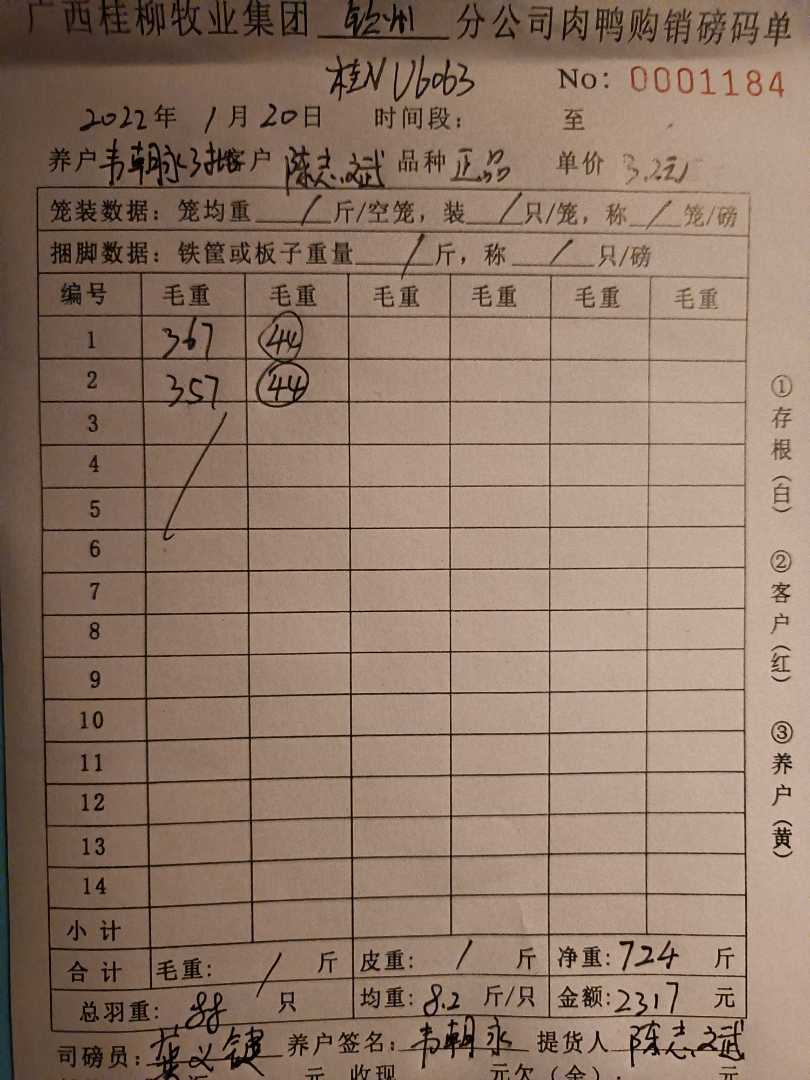 广西桂柳牧业集团 钦州 分公司肉鸭购销磅码单
桂N U6063 No: 0001184
2022年 1月20日 时间段: 至
养户韦朝永3批客户 陈志斌 品种 正品 单价 3.2元
笼装数据: 笼均重 / 斤/空笼, 装 / 只/笼, 称 / 笼/磅
捆脚数据: 铁筐或板子重量 / 斤, 称 / 只/磅
编号 毛重 毛重 毛重 毛重 毛重 毛重
1 367 44
2 357 44
3
4
5
6
7
8
9
10
11
12
13
14
小计
合计 毛重: / 斤 皮重: / 斤 净重: 724 斤
总羽重: 88 只 均重: 8.2 斤/只 金额: 2317 元
司磅员: 养户签名: 韦朝永 提货人 陈志斌
元 收现 元欠(余). 元
①存根(白) ②客户(红) ③养户(黄)